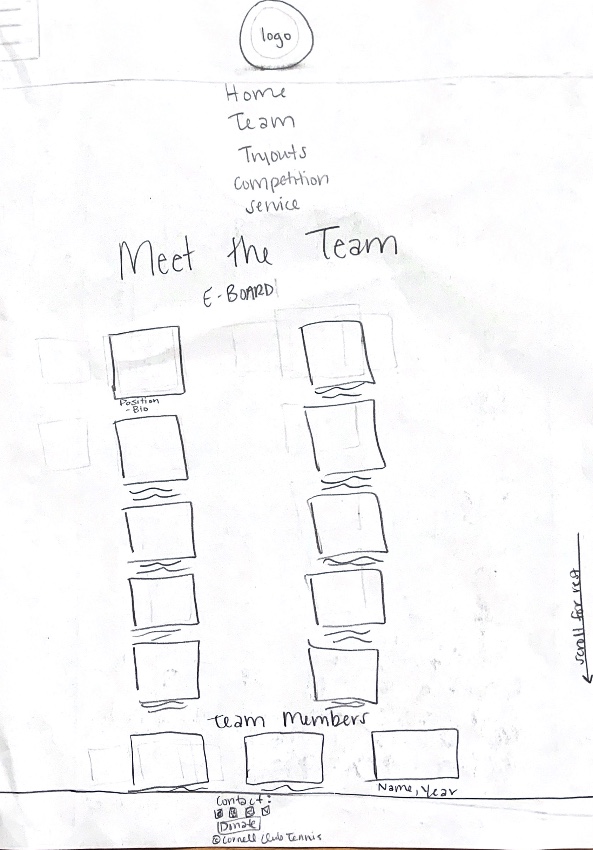 logo
Home
Team
Tryouts
Competition
Service
Meet the Team
E-BOARD
Position
-Bio
scroll for rest
Team Members
Name, Year
Contact:
Donate
© Cornell Club Tennis